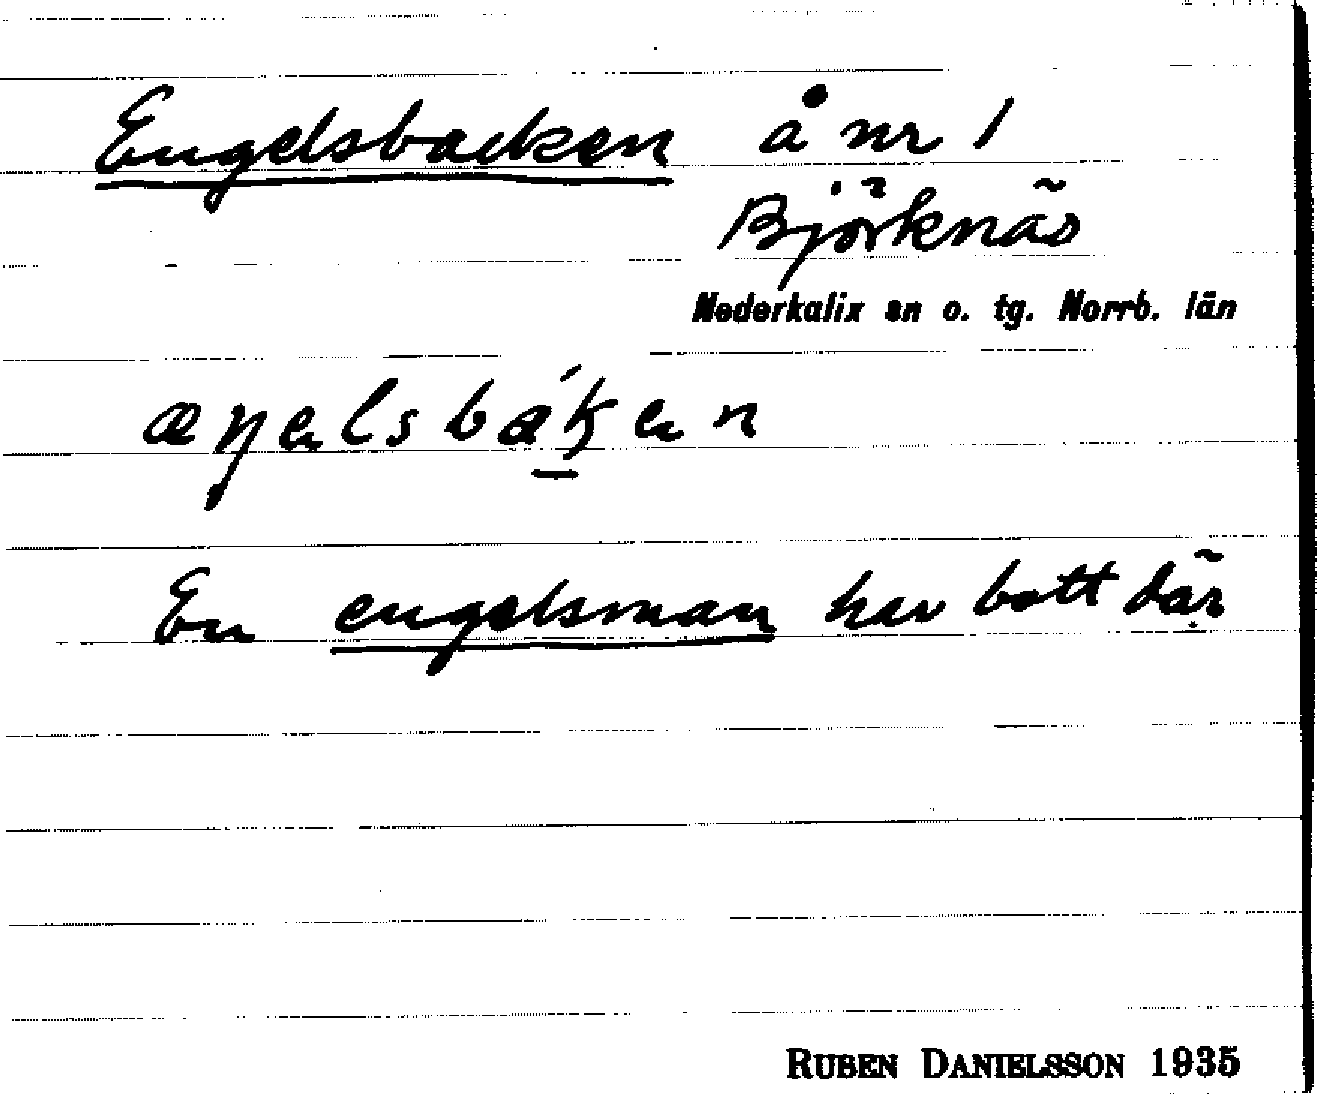 Engelsbacken å nr 1
Björknäs
Nederkalix sn o. tg. Norrb. län
æŋelsbák̠en
En engelsman har bott där
RUBEN DANIELSSON 1935